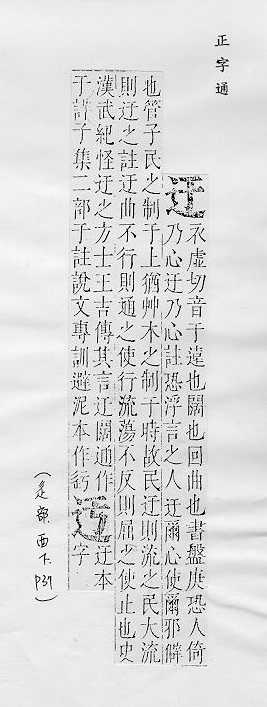 正字通
迂 衣虛切音于遠也闊也回曲也書盤庚恐人倚
乃心迂乃心註恐浮言之人迂爾心使爾邪僻
也管子民之制于上猶艸木之制于時故民迂則流之民大流
則迂之註迂曲不行則通之使行流蕩不反則屈之使止也史
漢武紀怪迂之方士王吉傳其言迂闊通作
于詳子集二部于註說文專訓避泥本作
迃 迂本
字
(辵部酉下 P31)